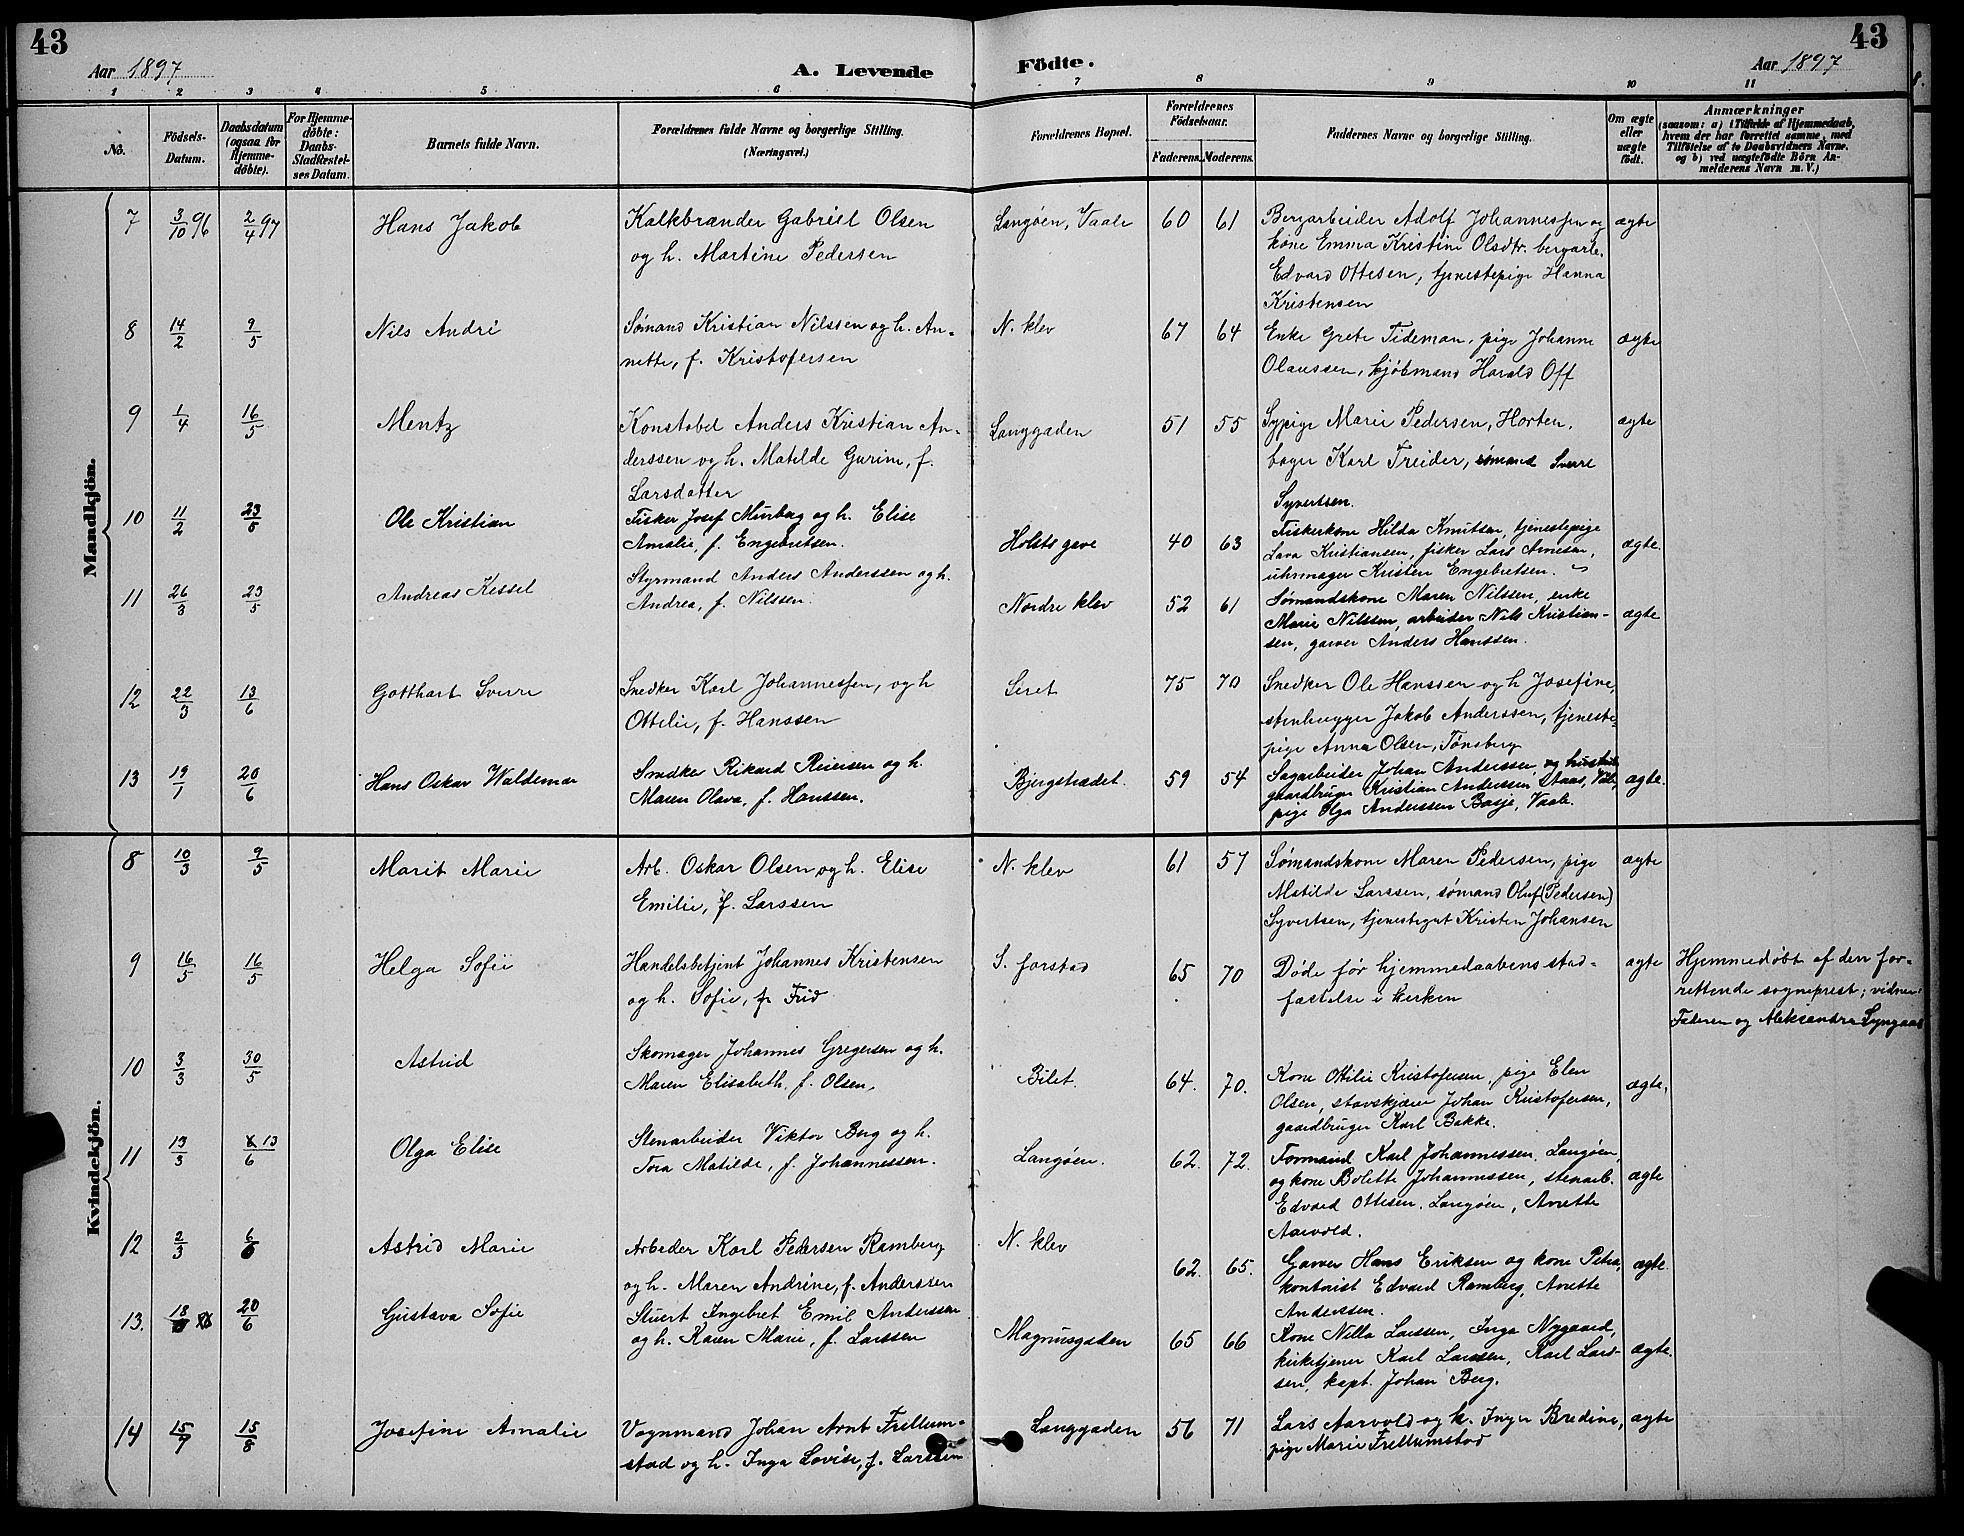 43
43
Aar 1897
A. Levende
Födte.
Aar 1897
1 2 3 4 5 6 7 8 9 10 11
No.
Födsels-
Datum.
Daabsdatum
(ogsaa for
Hjemme-
döbte).
For Hjemme-
döbte:
Daabs-
Stadfæstel-
ses Datum.
Barnets fulde Navn.
Forældrenes fulde Navne og borgerlige Stilling.
(Næringsvei.)
Forældrenes Bopæl.
Forældrenes
Födselsaar.
Faderens. Moderens.
Faddernes Navne og borgerlige Stilling.
Om ægte
eller
uægte
födt.
Anmærkninger
(saasom: a) i Tilfælde af Hjemmedaab,
hvem der har forrettet samme, med
Tilföielse af to Daabsvidners Navne.
og b) ved uægtefödte Börn An-
melderens Navn m. V.)
Mandkjön.
7 3/10 96 2/4 97 Hans Jakob
Kalkbrænder Gabriel Olsen
og h. Martine Pedersen
Langøen, Vaale 60 61
Bergarbeider Adolf Johannessen og
kone Emma Kristine Olsdtr. bergarb.
Edvard Ottesen, tjenestepige Hanna
Kristensen
ægte
8 14/2 9/5 Nils Andri
Sømand Kristian Nilssen og h. An-
nette, f. Kristofersen
N. klev 67 64
Enke Grete Tideman, pige Johanne
Olaussen, kjøbmand Harald Off
ægte
9 1/4 16/5 Mentz
Konstabel Anders Kristian An-
derssen og h. Matilde Gurine, f.
Larsdatter
Langgaden 51 55
Sypige Marie Pedersen, Horten,
bager Karl Treider, sømand Sverre
Syvertsen.
ægte
10 11/2 23/5 Ole Kristian
Fisker Josef Minberg og h. Elise
Amalie, f. Engebretsen.
Holsts gave 40 63
Fiskerkone Hilda Knutsen, tjenestepige
Lava Kristiansen, fisker Lars Arnesen,
uhrmager Kristen Engebretsen.
ægte.
11 26/3 23/5 Andreas Kessel
Styrmand Anders Anderssen og h.
Andrea, f. Nilssen.
Nordre klev 52 61
Sømandskone Maren Nilssen, enke
Marie Nilssen, arbeider Nils Kristian-
sen, garver Anders Hanssen.
ægte
12 22/3 13/6 Gotthart Sverre
Snedker Karl Johannessen, og h
Ottilie, f. Hanssen
Seret 75 70
Snedker Ole Hanssen og h Josefine,
stenhugger Jakob Anderssen, tjeneste-
pige Anna Olsen, Tønsberg
13 19/1 20/6 Hans Oskar Waldemar
Snedker Rikard Reiersen og h.
Maren Olava, f. Hanssen.
Bjergstrædet. 59 54
Sagarbeider Johan Anderssen og hustru
gaardbruger Kristian Anderssen Staas,
pige Olga Anderssen Basje, Vaale.
ægte.
Kvindekjön.
8 10/3 9/5 Marit Marie
Arb. Oskar Olsen og h. Elise
Emilie, f. Larssen
N. klev 61 57
Sømandskone Maren Pedersen, pige
Matilde Larssen, sømand Oluf (Pedersen)
Syvertsen, tjenestegut Kristen Johansen
ægte
9 16/5 16/5 Helga Sofie
Handelsbetjent Johannes Kristensen
og h. Sofie, f. Frid
S. forstad 65 70
Døde før hjemmedaabens stad-
fæstelse i kirken
ægte
Hjemmedøbt af den for-
rettende sogneprest; vidner:
Faderen og Aleksandra Lyngaas
10 3/3 30/5 Astrid
Skomager Johannes Gregersen og h.
Maren Elisabeth, f. Olsen.
Bilet. 64. 70.
Kone Ottilie Kristofersen, pige Elen
Olsen, stavskjærer Johan Kristofersen,
gaardbruger Karl Bakke.
ægte.
11 13/3 13/6 Olga Elise
Stenarbeider Viktor Berg og h.
Tora Matilde, f. Johannessen.
Langøen. 62. 72.
Formand Karl Johannessen, Langøen,
og kone Bolette Johannessen, stenarb.
Edvard Ottesen, Langøen, Anette
Aarvold.
ægte
12 2/3 6/6 Astrid Marie
Arbeder Karl Pedersen Ramberg
og h. Maren Andrine, f. Anderssen
N. klev 62. 65.
Garver Hans Eriksen og kone Petra,
kontorist Edvard Ramberg, Anette
Anderssen.
ægte.
13. 18 20/6 Gustava Sofie
Stuert Ingebret Emil Anderssen
og h. Karen Marie, f. Larssen
Magnusgaden 65 66
Kone Nilla Larssen, Inga Nygaard,
kirketjener Karl Larssen, Karl Lars-
sen, kapt. Johan Berg.
ægte.
14 15/7 15/8 Josefine Amalie
Vognmand Johan Arnt Frellum-
stad og h. Inga Lovise, f. Larssen
Langgaden 56 71
Lars Aarvold og h. Inger Bredine,
pige Marie Frellumstad
ægte